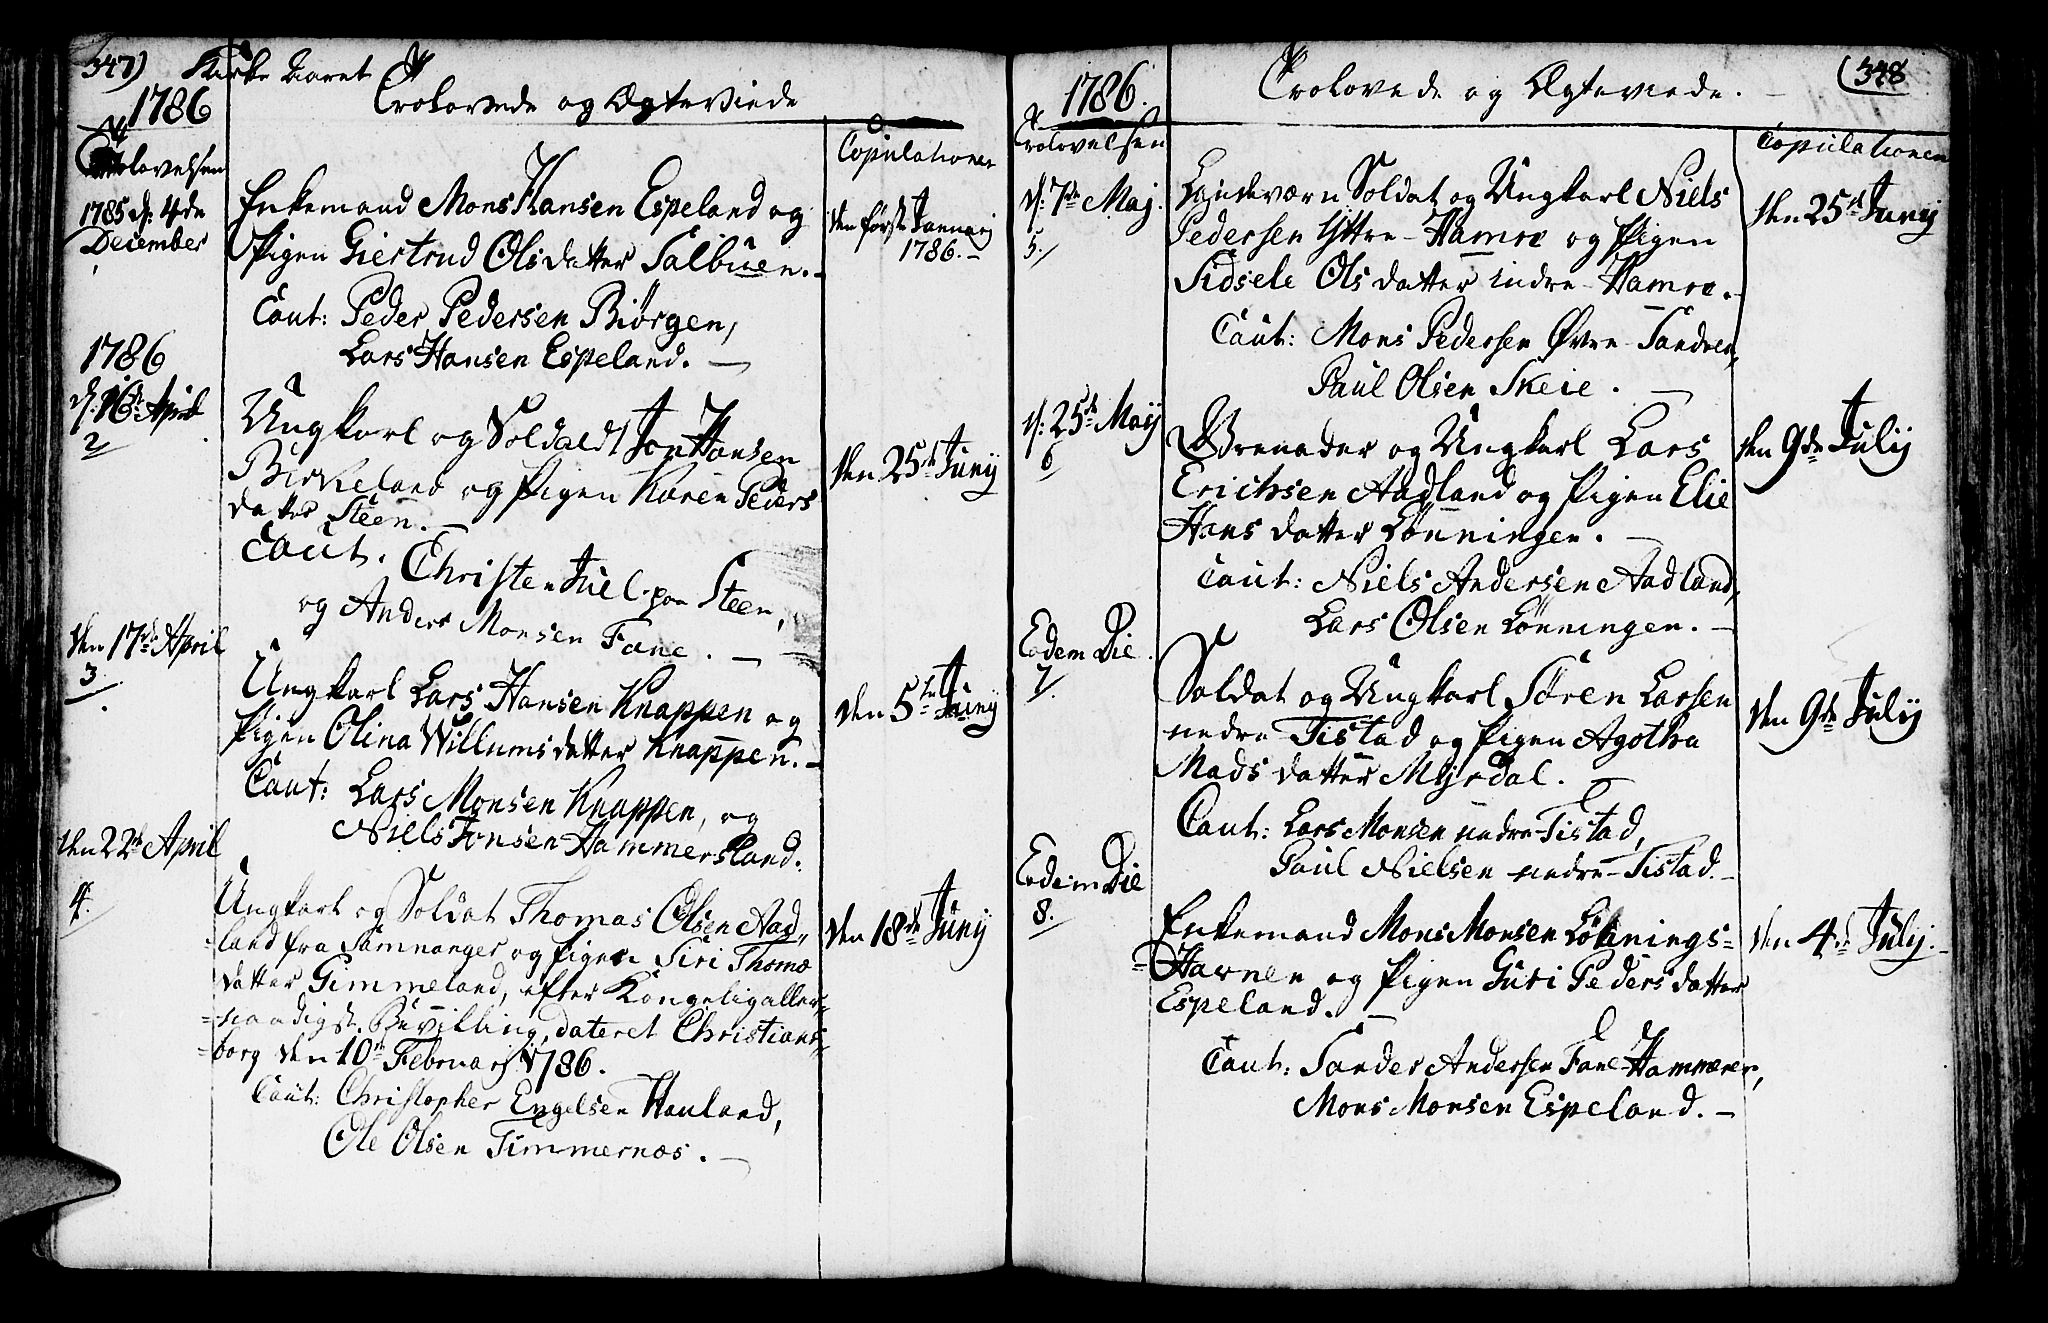 347) Kirke Aaret
1786
Trolovede og Ægteviede
Trolovelsen
Copulationen
1785 d: 4de
December
Enkemand Mons Hansen Espeland og
Pigen Giertrud Olsdatter Salbuen.
Caut: Peder Pedersen Biørgen,
Lars Hansen Espeland.
den første Januarij
1786.
1786
d: 16de April
2
Ungkarl og Soldadt Jon Hansen
Birkeland og Pigen Karen Peders
datter Steen.
Caut. Christen Juel paa Steen,
og Anders Monsen Fane.
den 25de Junij
den 17de April
3.
Ungkarl Lars Hansen Knappen og
Pigen Olina Willumsdatter Knappen.
Caut: Lars Monsen Knappen, og
Niels Jonsen Hammersland.
den 5te Junij
den 22de April
4.
Ungkarl og Soldat Thomas Olsen Aad„
land fra Samnanger og Pigen Siri Thomæ
datter Gimmeland, efter Kongelig aller-
naadigst Bevilling, dateret Christians-
borg den 10de Februarij 1786.
Caut: Christopher Engelsen Hauland,
Ole Olsen Timmernæs.
den 18de Junij
(348
1786.
Trolovede og Ægteviede.
Trolovelsen
Copulationen
d: 7de Maj.
5.
Landeværn Soldat og Ungkarl Niels
Pedersen Ÿttre-Hamre og Pigen
Sidsele Olsdatter indre-Hamre.
Caut: Mons Pedersen Øvre-Sandven,
Paul Olsen Skeie.
den 25de Junij
d: 25de Maij
6
Grenader og Ungkarl Lars
Erichsen Aadland og Pigen Elie
Hans datter Lønningen.
Caut: Niels Andersen Aadland,
Lars Olsen Lønningen.
den 9de Julij
Eodem Die
7.
Soldat og Ungkarl Søren Larsen
nedre Tistad og Pigen Agotha
Mads datter Myrdal.
Caut: Lars Monsen nedre-Tistad,
Paul Nielsen nedre-Tistad.
den 9de Julij
Eodem Die
8.
Enkemand Mons Monsen Lønnings-
Havnen og Pigen Guri Peders datter
Espeland.
Caut: Sander Andersen Fane-Hammeren,
Mons Monsen Espeland.
den 4de Julij.